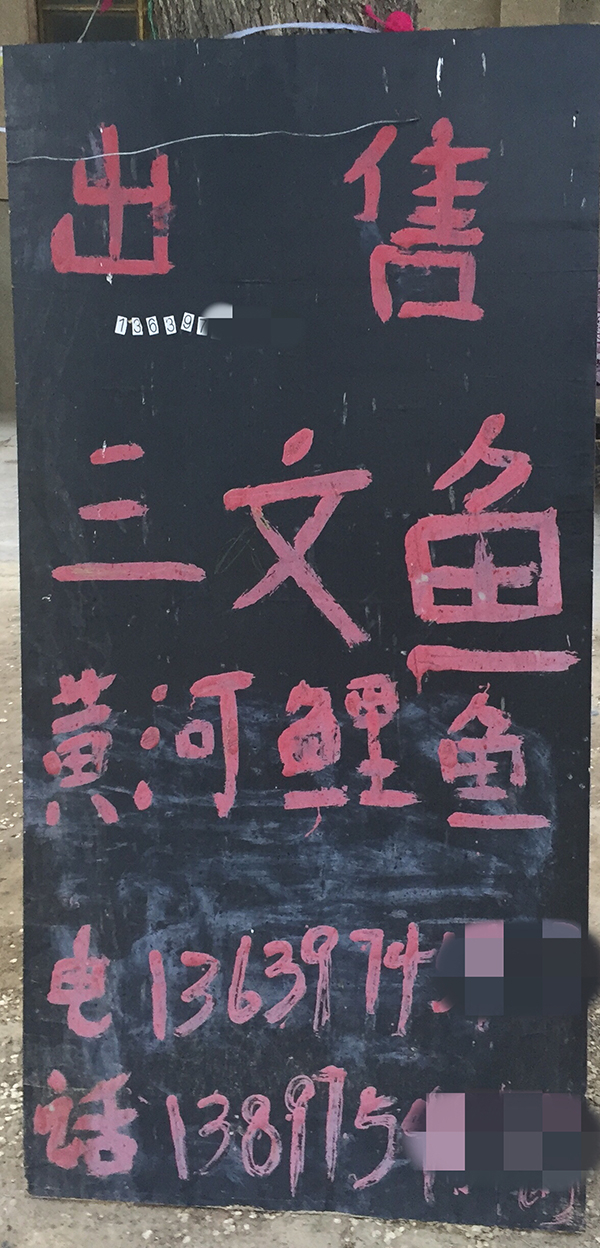 出售
136397
三文鱼
黄河鲤鱼
电 13639974
话 138975